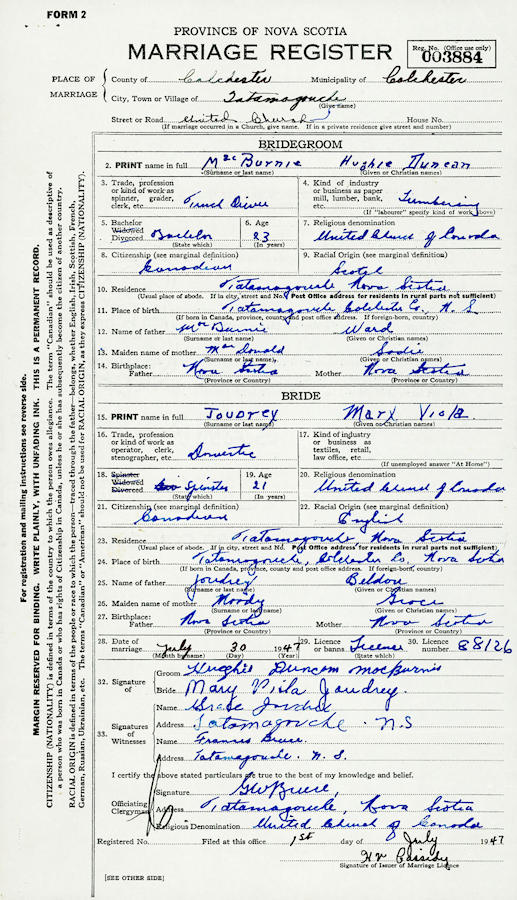 FORM 2
PROVINCE OF NOVA SCOTIA
MARRIAGE REGISTER
Reg. No. (Office use only)
003884
PLACE OF MARRIAGE
County of Colchester Municipality of Colchester
City, Town or Village of Tatamagouche
(Give name)
Street or Road United Church House No.
(If marriage occurred in a Church, give name. If in a private residence give street and number)
BRIDEGROOM
2. PRINT name in full MacBurnie Hughie Duncan
(Surname or last name) (Given or Christian names)
3. Trade, profession or kind of work as spinner, grader, clerk, etc. Truck Driver
4. Kind of industry or business as paper mill, lumber, bank, etc. Lumbering
(If "labourer" specify kind of work above)
5. Bachelor Widowed Divorced Bachelor
(State which)
6. Age 23
(In years)
7. Religious denomination United Church of Canada
8. Citizenship (see marginal definition) Canadian
9. Racial Origin (see marginal definition) Scotch
10. Residence Tatamagouche Nova Scotia
(Usual place of abode. If in city, street and No. Post Office address for residents in rural parts not sufficient)
11. Place of birth Tatamagouche Colchester Co., N. S.
(If born in Canada, province, county and post office address. If foreign-born, country)
12. Name of father MacBurnie Ward
(Surname or last name) (Given or Christian names)
13. Maiden name of mother MacDonald Sadie
(Surname or last name) (Given or Christian names)
14. Birthplace: Father Nova Scotia Mother Nova Scotia
(Province or Country) (Province or Country)
BRIDE
15. PRINT name in full Joudrey Mary Viola
(Surname or last name) (Given or Christian names)
16. Trade, profession or kind of work as operator, clerk, stenographer, etc. Domestic
17. Kind of industry or business as textiles, retail, law office, etc
(If unemployed answer "At Home")
18. Spinster Widowed Divorced Spinster
(State which)
19. Age 21
(In years)
20. Religious denomination United Church of Canada
21. Citizenship (see marginal definition) Canadian
22. Racial Origin (see marginal definition) English
23. Residence Tatamagouche, Nova Scotia
(Usual place of abode. If in city, street and No. Post Office address for residents in rural parts not sufficient)
24. Place of birth Tatamagouche, Colchester Co., Nova Scotia
(If born in Canada, province, county and post office address. If foreign-born, country)
25. Name of father Joudrey Beldon
(Surname or last name) (Given or Christian names)
26. Maiden name of mother Moody Grace
(Surname or last name) (Given or Christian names)
27. Birthplace: Father Nova Scotia Mother Nova Scotia
(Province or Country) (Province or Country)
28. Date of marriage July 30 1947
(Month by name) (Day) (Year)
29. Licence or banns License
30. Licence number 88126
32. Signature of
Groom Hughie Duncan MacBurnie
Bride Mary Viola Joudrey
33. Signatures of Witnesses
Name Grace Joudrey
Address Tatamagouche N.S
Name Frances Bruce.
Address Tatamagouche. N. S.
I certify the above stated particulars are true to the best of my knowledge and belief.
Officiating Clergyman
Signature Bruce,
Address Tatamagouche, Nova Scotia
Religious Denomination United Church of Canada
Registered No. Filed at this office 1st day of July 1947
Cassidy
Signature of Issuer of Marriage Licence
[SEE OTHER SIDE]
For registration and mailing instructions see reverse side.
MARGIN RESERVED FOR BINDING. WRITE PLAINLY, WITH UNFADING INK. THIS IS A PERMANENT RECORD.
CITIZENSHIP (NATIONALITY) is defined in terms of the country to which the person owes allegiance. The term "Canadian" should be used as descriptive of
a person who was born in Canada or who has rights of Citizenship in Canada, unless he or she has subsequently become the citizen of another country.
RACIAL ORIGIN is defined in terms of the people or race to which the person—traced through the father—belongs, whether English, Irish, Scottish, French,
German, Russian, Ukrainian, etc. The terms "Canadian" or "American" should not be used for RACIAL ORIGIN, as they express CITIZENSHIP (NATIONALITY).